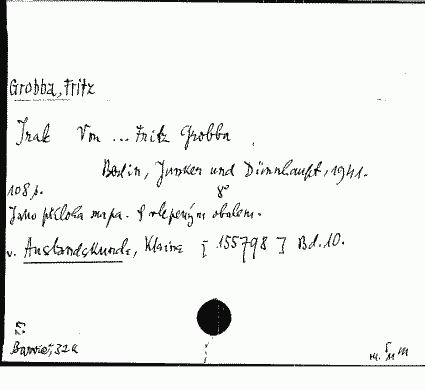 Grobba, Fritz
Irak Von ... Fritz Grobba
Berlin, Junker und Dünnhaupt, 1941.
108 p. 8°
Jako příloha mapa. S vlepeným obalem.
v. Auslandskunde, Kleine [155798] Bd. 10.